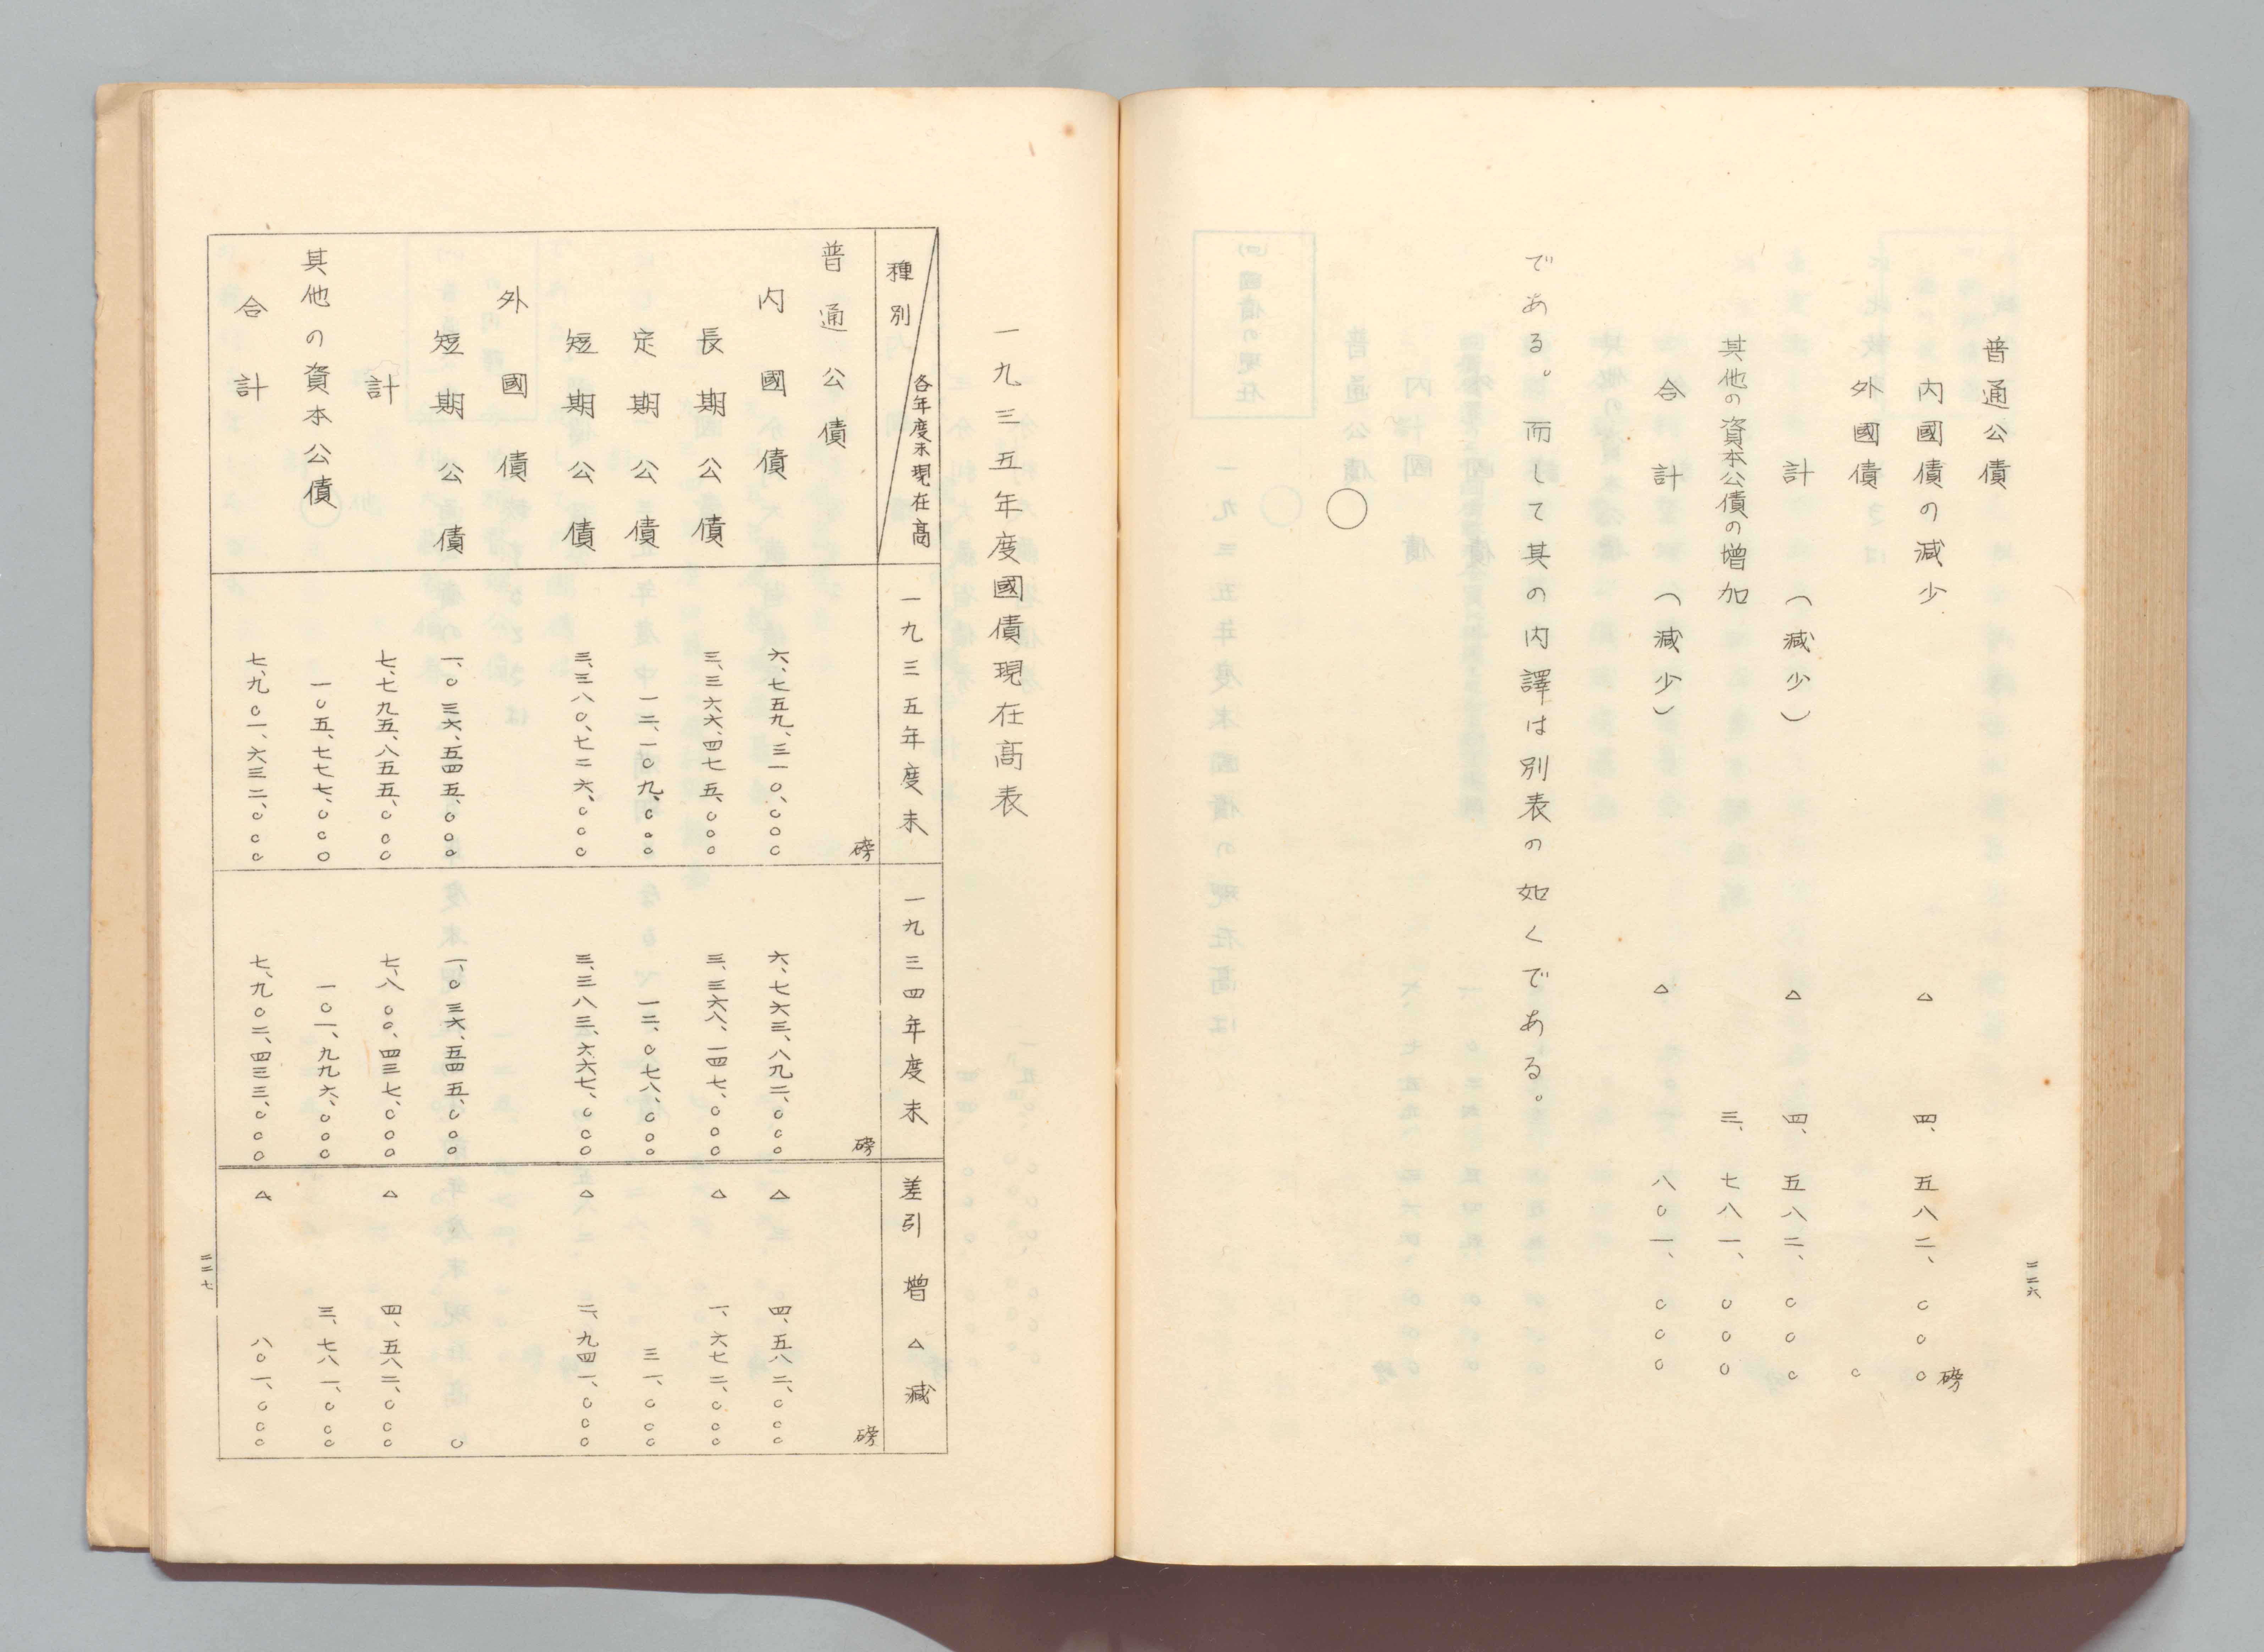 普通公債
内國債の減少 △ 四、五八二、〇〇〇磅
外國債 〇
計(減少) △ 四、五八二、〇〇〇
其他の資本公債の増加 三、七八一、〇〇〇
合計(減少) △ 八〇一、〇〇〇
である。而して其の内譯は別表の如くである。
〇
二二六
一九三五年度國債現在高表
種別 各年度末現在高 一九三五年度末 一九三四年度末 差引増△減
普通公債 磅 磅 磅
内國債 六、七五九、三一〇、〇〇〇 六、七六三、八九二、〇〇〇 △ 四、五八二、〇〇〇
長期公債 三、三六六、四七五、〇〇〇 三、三六八、一四七、〇〇〇 △ 一、六七二、〇〇〇
定期公債 一二、一〇九、〇〇〇 一二、〇七八、〇〇〇 三一、〇〇〇
短期公債 三、三八〇、七二六、〇〇〇 三、三八三、六六七、〇〇〇 △ 二、九四一、〇〇〇
外國債
短期公債 一、〇三六、五四五、〇〇〇 一、〇三六、五四五、〇〇〇 〇
計 七、七九五、八五五、〇〇〇 七、八〇〇、四三七、〇〇〇 △ 四、五八二、〇〇〇
其他の資本公債 一〇五、七七七、〇〇〇 一〇一、九九六、〇〇〇 三、七八一、〇〇〇
合計 七、九〇一、六三二、〇〇〇 七、九〇二、四三三、〇〇〇 △ 八〇一、〇〇〇
二二七